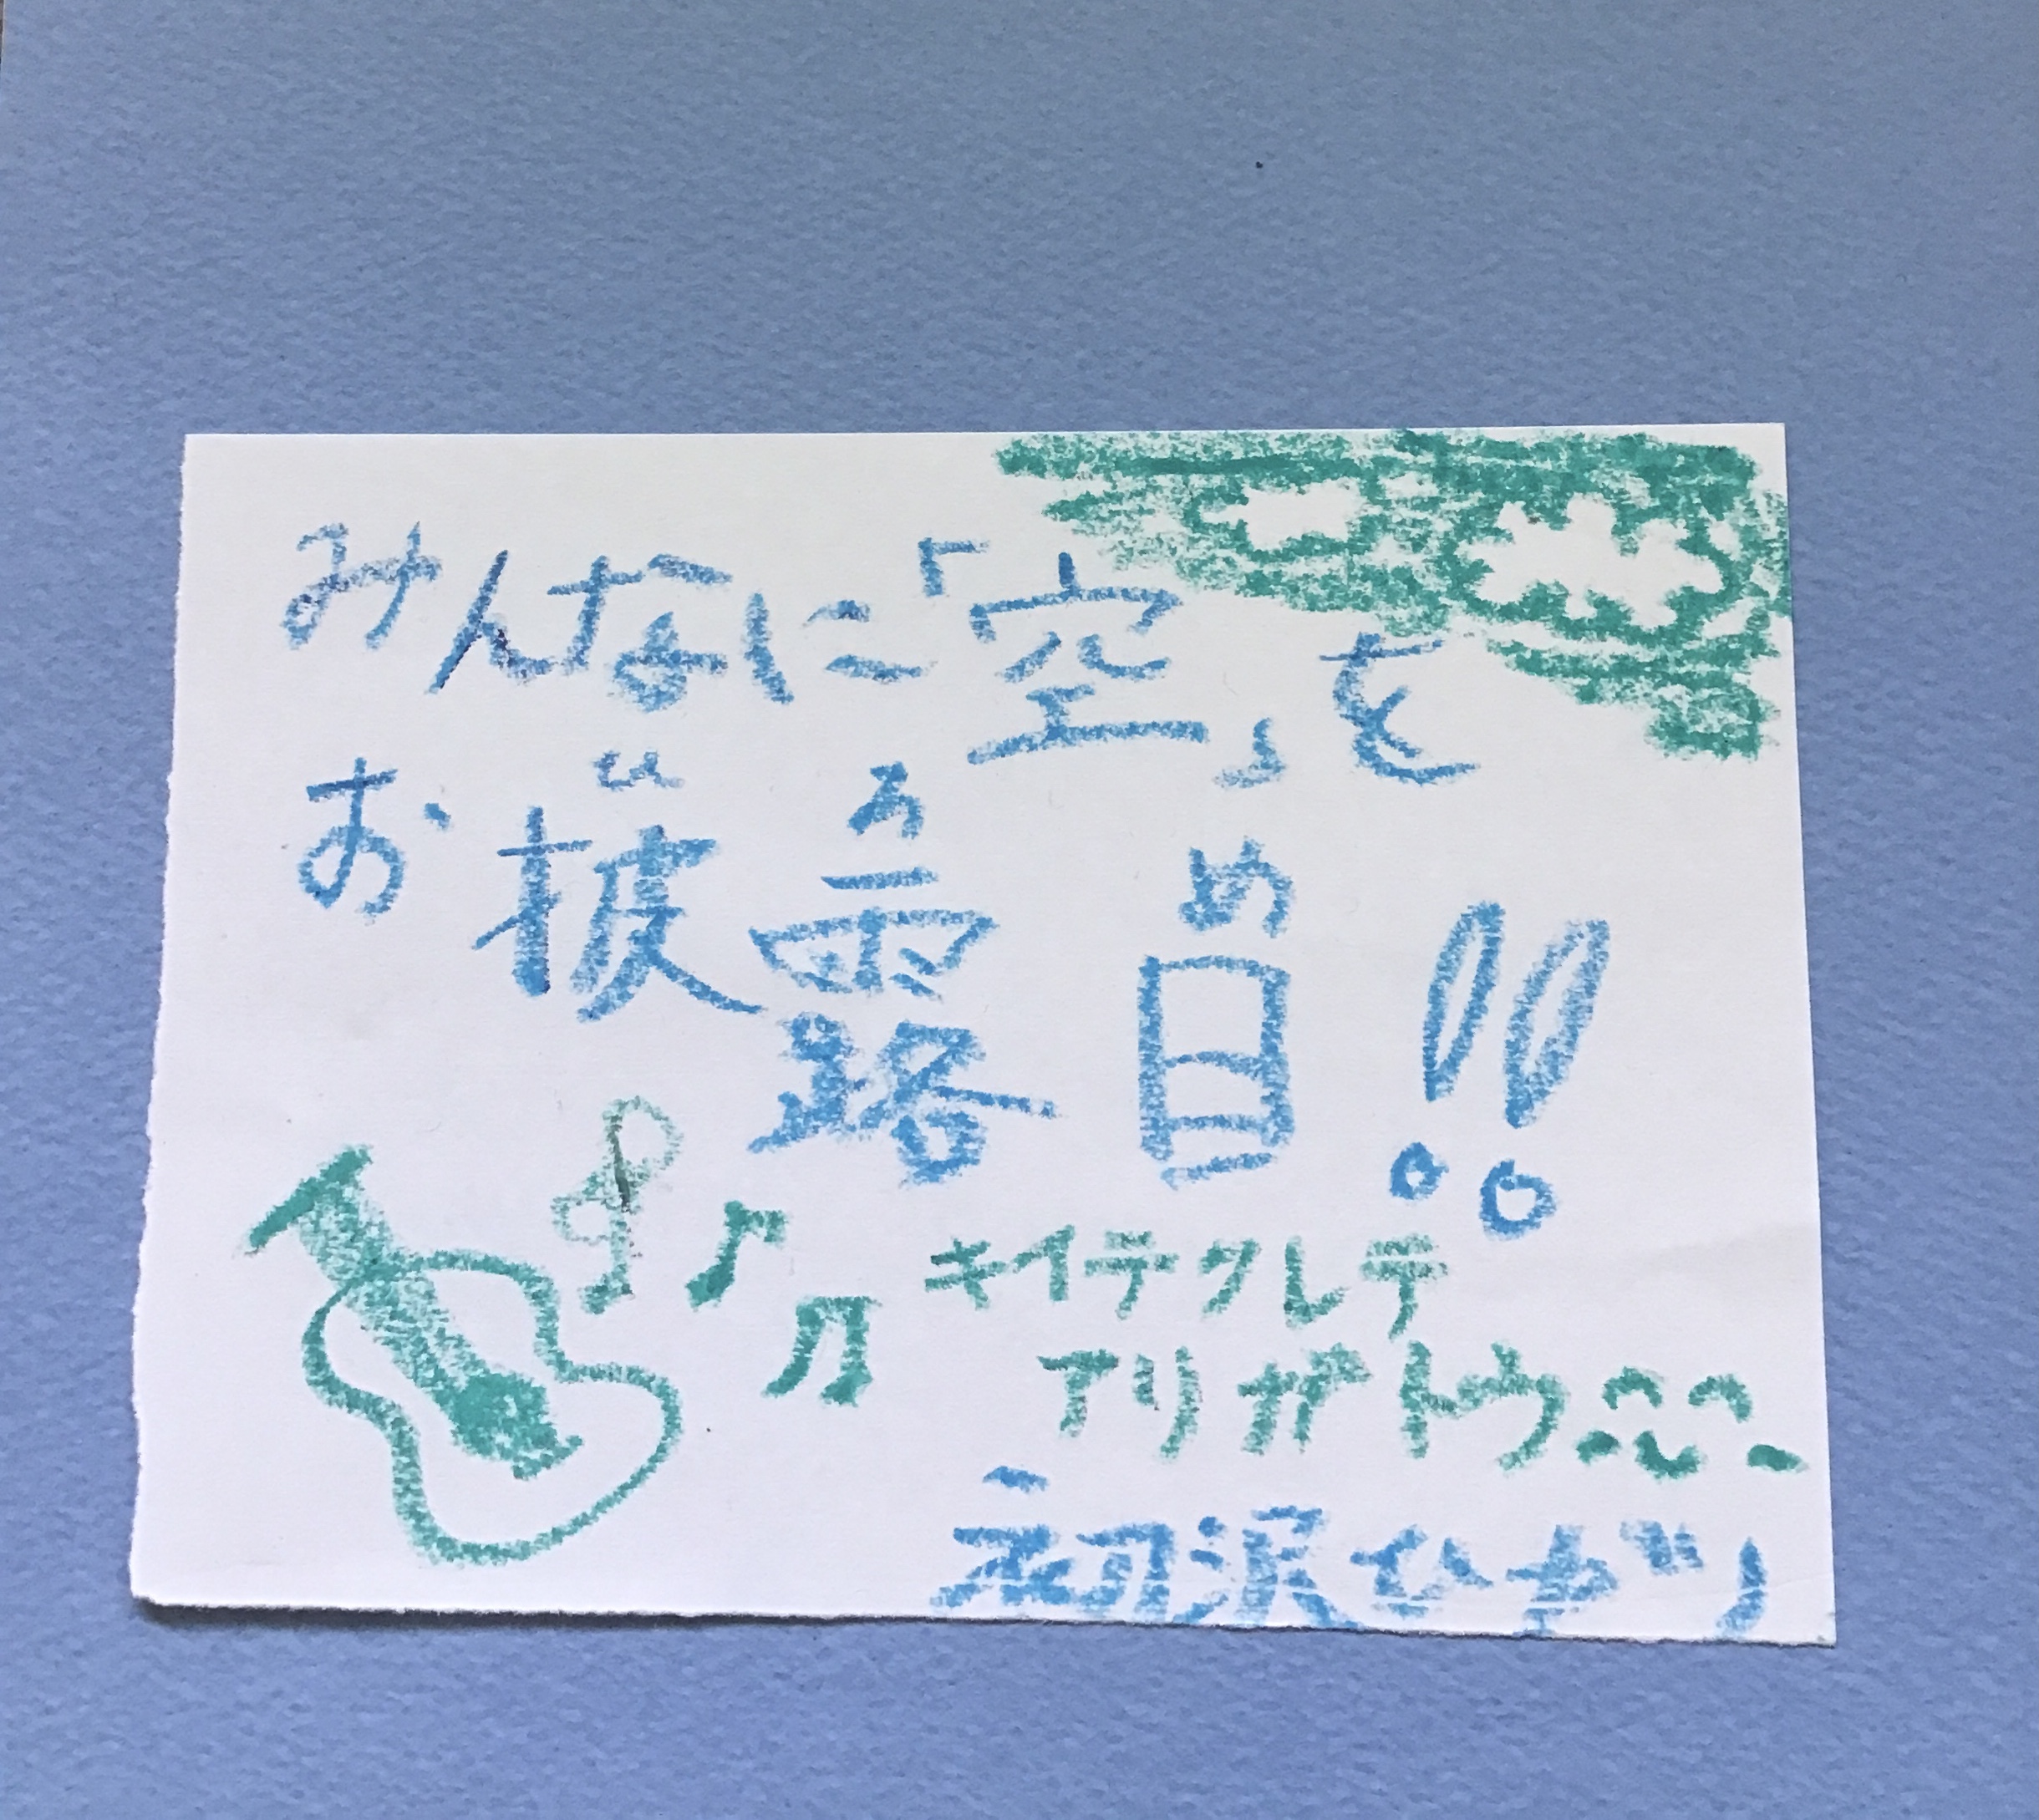 みんなに「空」を
お披露目!!
ひ ろ め
キイテクレテ
アリガトウ
初沢ひかり